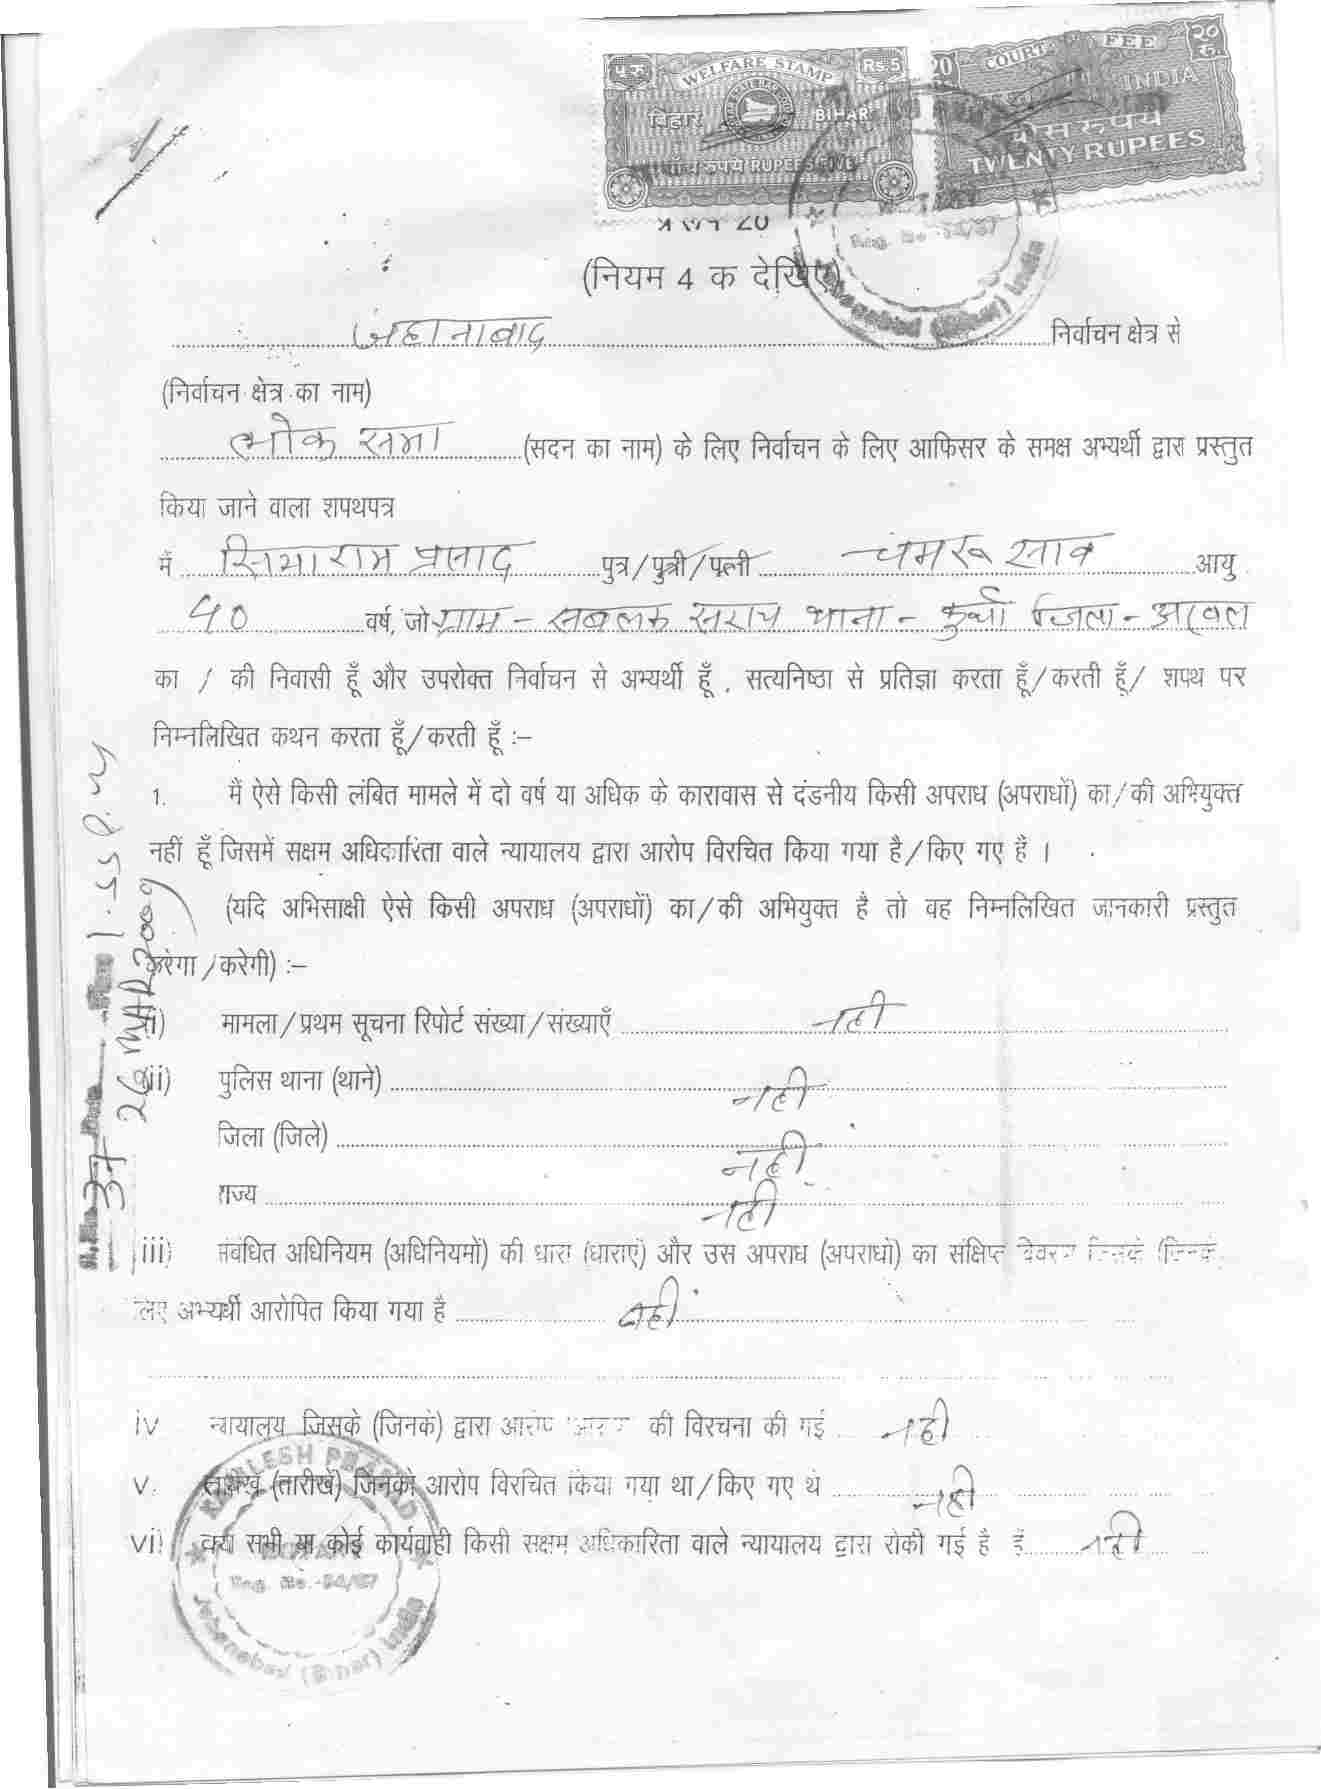 ५ रु. WELFARE STAMP Rs. 5
बिहार BIHAR
पाँच रुपये RUPEES FIVE
20 COURT FEE २० रु.
INDIA
बीस रुपये
TWENTY RUPEES
Reg. No.-54/87
(नियम 4 क देखिए)
जहानाबाद निर्वाचन क्षेत्र से
(निर्वाचन क्षेत्र का नाम)
लोक सभा (सदन का नाम) के लिए निर्वाचन के लिए आफिसर के समक्ष अभ्यर्थी द्वारा प्रस्तुत
किया जाने वाला शपथपत्र
में सियाराम प्रसाद पुत्र/पुत्री/पत्नी चमरू साव आयु
40 वर्ष, जो ग्राम - सबलक सराय थाना - कुर्था जिला - अरवल
का / की निवासी हूँ और उपरोक्त निर्वाचन से अभ्यर्थी हूँ , सत्यनिष्ठा से प्रतिज्ञा करता हूँ/करती हूँ/ शपथ पर
निम्नलिखित कथन करता हूँ/करती हूँ :–
1. मैं ऐसे किसी लंबित मामले में दो वर्ष या अधिक के कारावास से दंडनीय किसी अपराध (अपराधों) का/की अभियुक्त
नहीं हूँ जिसमें सक्षम अधिकारिता वाले न्यायालय द्वारा आरोप विरचित किया गया है/किए गए है ।
(यदि अभिसाक्षी ऐसे किसी अपराध (अपराधों) का/की अभियुक्त है तो वह निम्नलिखित जानकारी प्रस्तुत
करेगा/करेगी) :–
i) मामला/प्रथम सूचना रिपोर्ट संख्या/संख्याएँ नही
ii) पुलिस थाना (थाने) नही
जिला (जिले) नही
राज्य नही
iii) संबंधित अधिनियम (अधिनियमों) की धारा (धाराएं) और उस अपराध (अपराधों) का संक्षिप्त विवरण जिसके (जिनके
लिए अभ्यर्थी आरोपित किया गया है नही
iv न्यायालय जिसके (जिनके) द्वारा आरोप की विरचना की गई नही
v. तारीख (तारीखें) जिनको आरोप विरचित किया गया था/किए गए थे नही
vi) क्या सभी या कोई कार्यवाही किसी सक्षम अधिकारिता वाले न्यायालय द्वारा रोकी गई है हैं नही
KAMLESH PRASAD
NOTARY
Reg. No.-54/87
Jehanabad (Bihar) India
37 26 MAR 2009 1.55 P.M